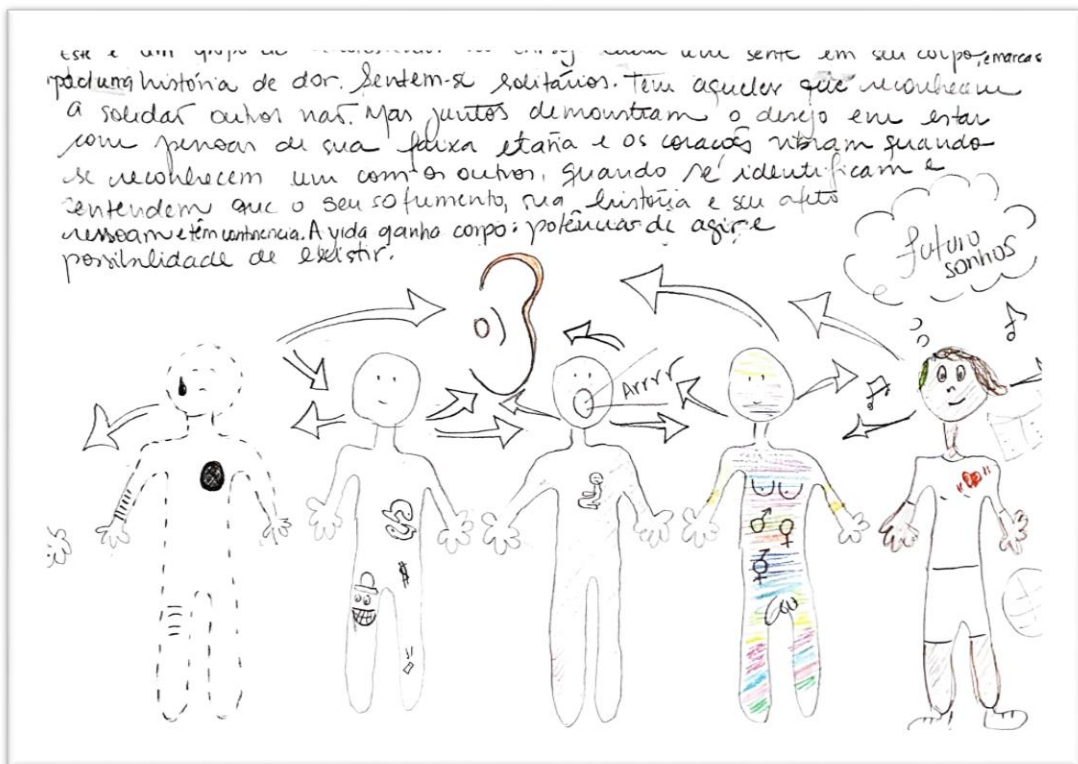 Este é um grupo de cada um sente em seu corpo, e marcas
uma história de dor. Sentem-se solitários. Tem aqueles que reconhecem
a solidão outros não. Mas juntos demonstram o desejo em estar
com pessoas de sua faixa etária e os corações vibram quando
se reconhecem um com os outros, quando se identificam e
entendem que o seu sofrimento, sua história e seu afeto
ressoam e têm continência. A vida ganha corpo: potências de agir e
possibilidade de existir.
futuro
sonhos
Arrrr
$